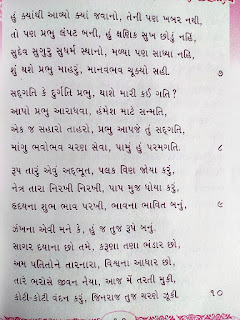 હું ક્યાંથી આવ્યો ક્યાં જવાનો, તેની પણ ખબર નથી,
તો પણ પ્રભુ લંપટ બની, હું ક્ષણિક સુખ છોડું નહિં,
સુદેવ સુગુરુ સુધર્મ સ્થાનો, મળ્યા પણ સાધ્યા નહિ,
શું થશે પ્રભુ માહરું, માનવભવ ચૂક્યો સહી. ૭
સદ્ગતિ કે દુર્ગતિ પ્રભુ, થાશે મારી કઈ ગતિ ?
આપો પ્રભુ આરાધવા, હંમેશ માટે સન્મતિ,
એક જ સહારો તાહરો, પ્રભુ આપજે તું સદ્ગતિ,
માંગુ ભવોભવ ચરણ સેવા, પામું હું પરમગતિ. ૮
રૂપ તારું એવું અદ્ભૂત, પલક વિણ જોયા કરું,
નેત્ર તારા નિરખી નિરખી, પાપ મુજ ધોયા કરું,
હૃદયના શુભ ભાવ પરખી, ભાવના ભાવિત બનું, ૯
ઝંખના એવી મને કે, હું જ તુજ રૂપે બનું.
સાગર દયાના છો તમે, કરૂણા તણા ભંડાર છો,
અમ પતિતોને તારનારા, વિશ્વના આધાર છો,
તારે ભરોસે જીવન નૈયા, આજ મેં તરતી મુકી,
કોટી-કોટી વંદન કરું, જિનરાજ તુજ ચરણે ઝૂકી. ૧૦